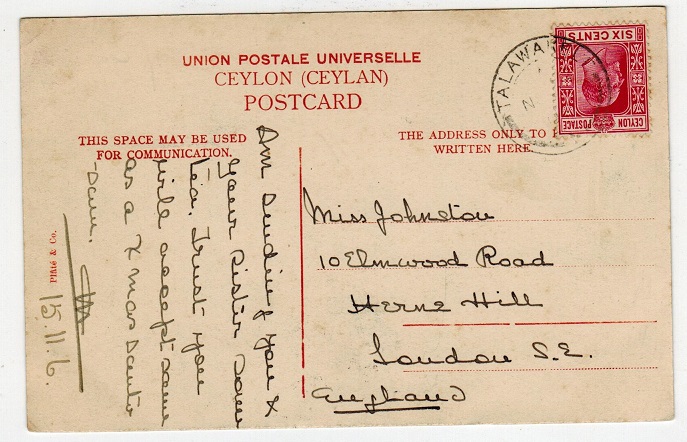 UNION POSTALE UNIVERSELLE
CEYLON (CEYLAN)
POSTCARD
THIS SPACE MAY BE USED
FOR COMMUNICATION.
THE ADDRESS ONLY TO
WRITTEN HERE.
TALAWAKE
N
SIX CENTS
CEYLON
POSTAGE
Am sending you &
your sister some
tea. Trust you
will accept same
as a Xmas
15.11.6.
Plâté & Co.
Miss Johnston
10 Elmwood Road
Herne Hill
London S.E.
England